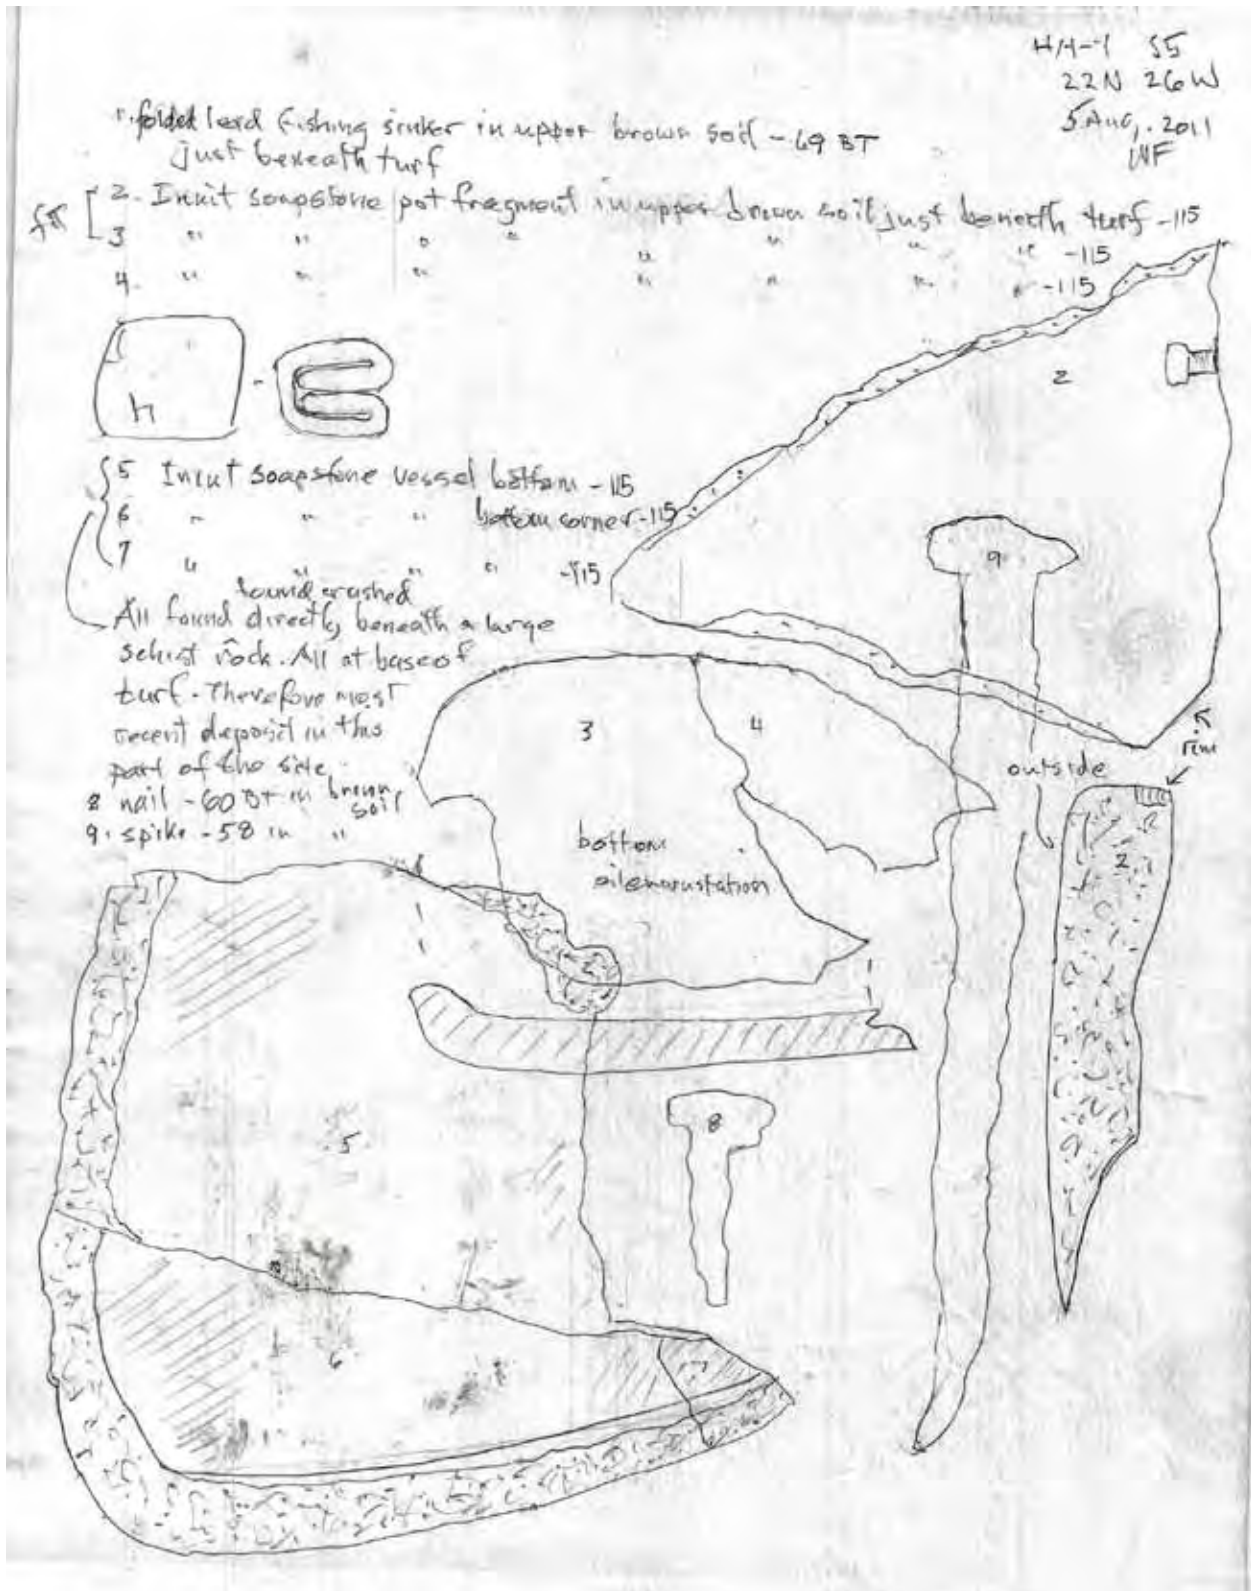 HH-1 S5
22N 26W
5 Aug. 2011
WF
1. folded lead fishing sinker in upper brown soil - 69 BT
just beneath turf
fit [ 2. Inuit soapstone pot fragment in upper brown soil just beneath turf -115
3 " " " " " " " " -115
4. " " " " " " " -115
h
2
5 Inuit soapstone vessel bottom -115
6 " " " bottom corner -115
7 " " " " -115
found crashed
All found directly beneath a large
schist rock. All at base of
turf. Therefore most
recent deposit in this
part of the site.
8 nail - 60 BT in brown soil
9. spike - 58 in "
9
3
4
rim
outside
bottom
oil encrustation
2
5
8
6
7